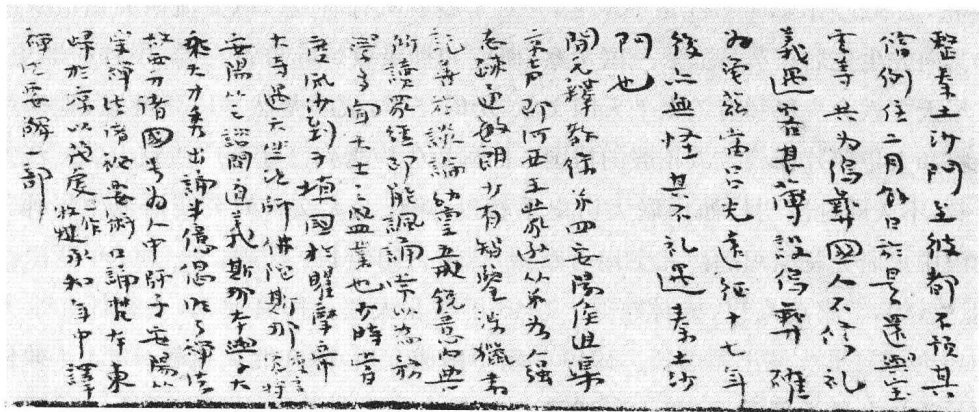 整秦土沙門至彼都不預其
僧例住二月餘日於是還與宝
雲等共為 國人不行礼
義遇客甚薄設 雖
先 經十七年
後亦無怪其不礼遇秦土沙
門也
開元釋教録第四安陽侯沮渠
京声即河西王蒙遜從弟為人強
志疎通敏朗少有智鑒涉獵書
記善於談論幼稟五戒銳意内典
所讀衆經即能諷誦常以為務
學多聞大士之盛業也少時甞
度流沙到于填國於瞿摩帝
大寺遇天竺法師佛陀斯那
安陽從諮問道義斯那本學大
乘天才秀出誦半億偈明了禅法
故西方諸國号為人中師子安陽從
受禅法 秘要術口誦梵本東
歸於涼以茂虔 牧犍承和年中譯
禅法要解一部